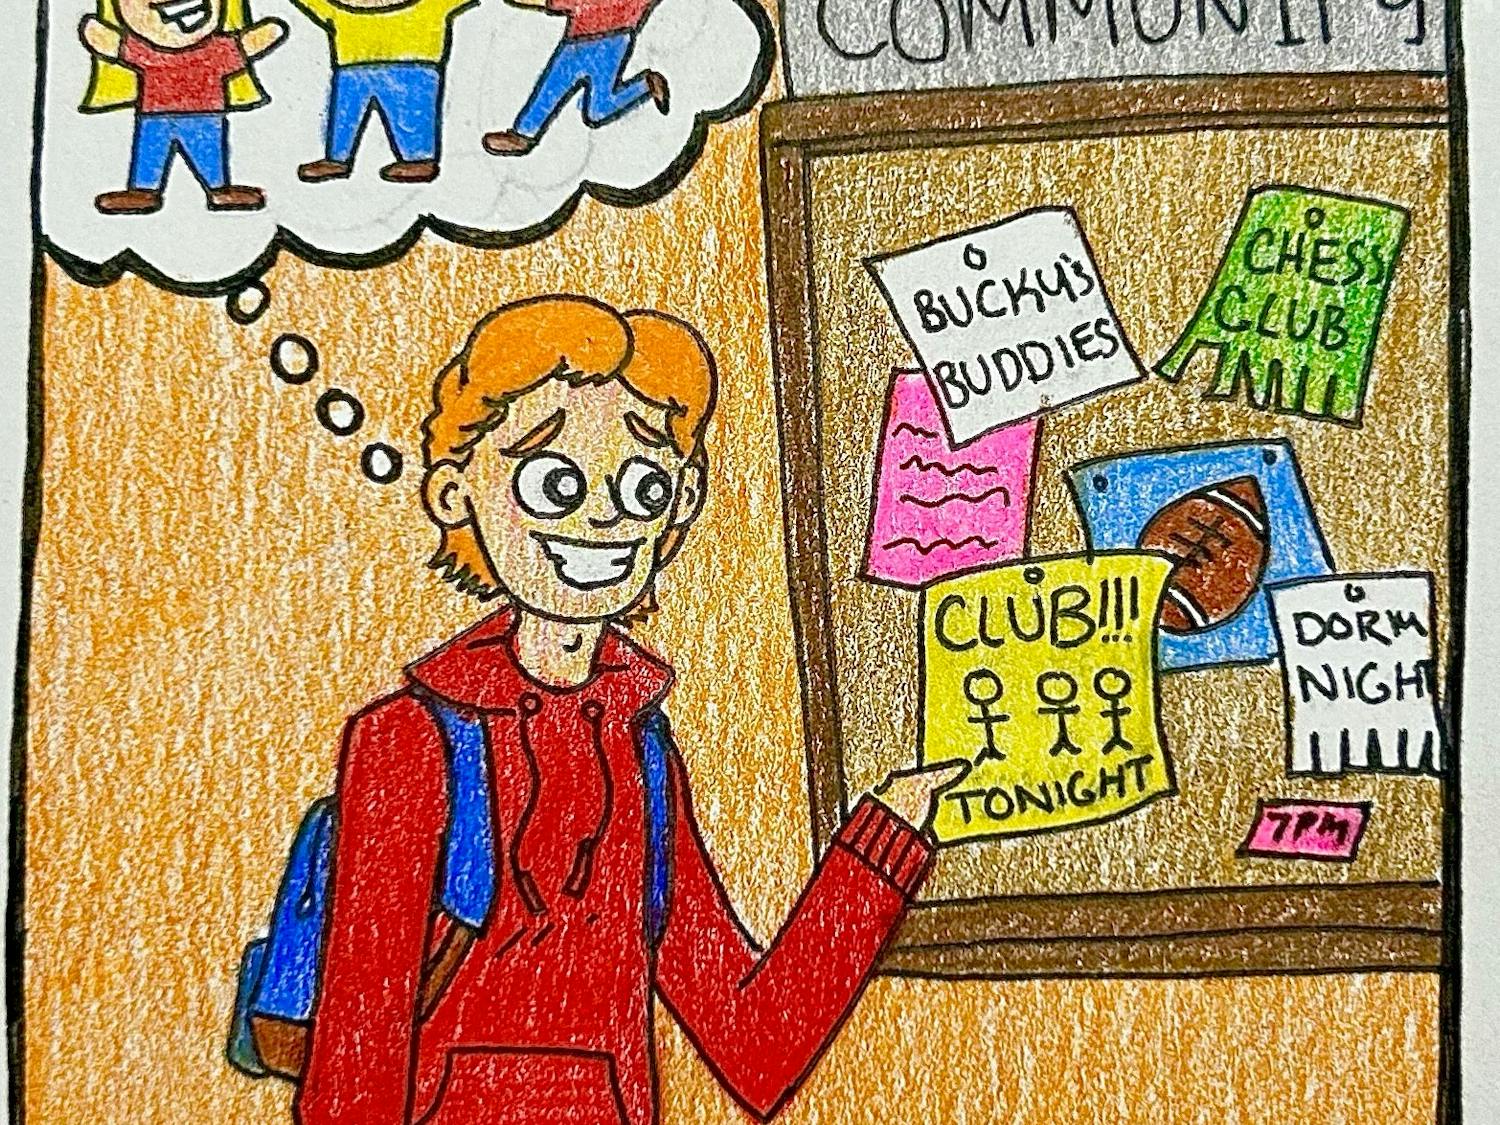 COMMUNITY
BUCKY'S
BUDDIES
CHESS
CLUB
CLUB!!!
TONIGHT
DORM
NIGHT
7PM